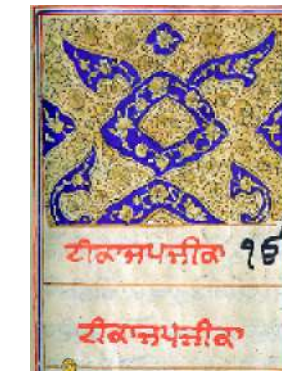 ਟੀਕਾਜਪੁਜੀਕਾ ੧ੳ
ਟੀਕਾਜਪੁਜੀਕਾ